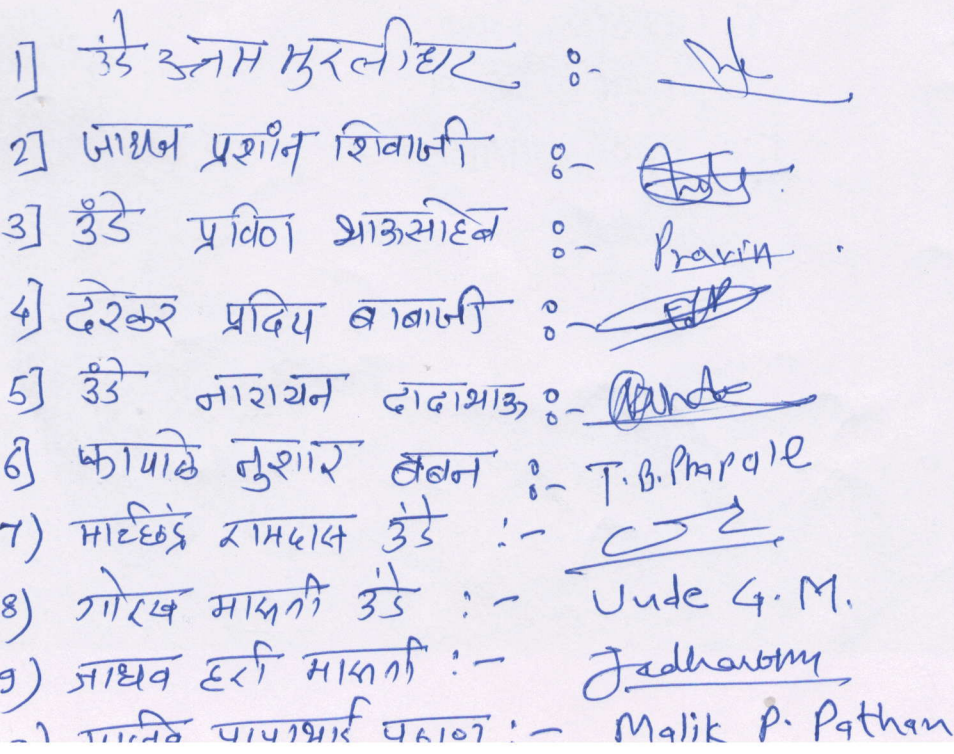 1] उंडे उत्तम मुरलीधर :-
2] जाधव प्रशांत शिवाजी :-
3] उंडे प्रविण भाऊसाहेब :- Pravin
4] देरेकर प्रदिप बाबाजी :-
5] उंडे नारायन दादाभाऊ :-
6] फापाळे तुशार बबन :- T.B.Phapale
7) मच्छिंद्र रामदास उंडे :-
8) गोरख मारूती उंडे :- Uude G.M.
9) जाधव हरी मारूती :- Jadhavhm
मलिक पापाभाई पठाण :- Malik P. Pathan